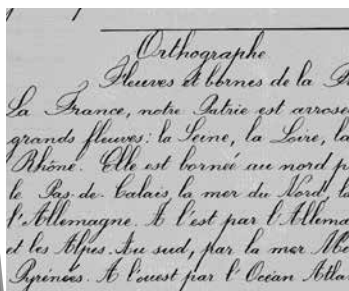 Orthographe
Fleuves et bornes de la Fr
La France, notre Patrie est arrosé
grands fleuves: la Seine, la Loire, la
Rhône. Elle est bornée au nord p
le Pas-de-Calais, la mer du Nord, la
l'Allemagne. A l'est par l'Allema
et les Alpes. Au sud, par la mer Mé
Pyrénées. A l'ouest par l'Océan Atla